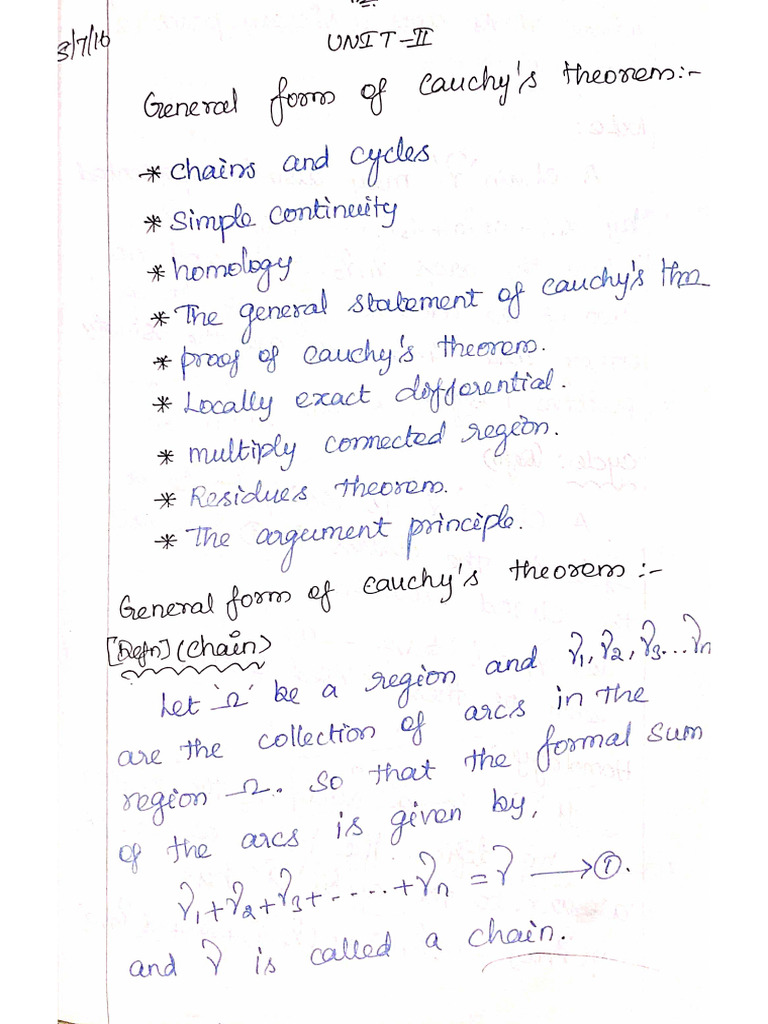 3/7/16
UNIT-II
General form of Cauchy's theorem:-
* chains and cycles
* Simple continuity
* homology
* The general statement of cauchy's thm
* proof of cauchy's theorem.
* Locally exact differential.
* multiply connected region.
* Residues theorem.
* The argument principle.
General form of cauchy's theorem :-
[Defn] (chain)
Let 'Ω' be a region and γ₁, γ₂, γ₃...γn
are the collection of arcs in the
region Ω. So that the formal sum
of the arcs is given by,
γ₁+γ₂+γ₃+.....+γn = γ ⟶ ①.
and γ is called a chain.